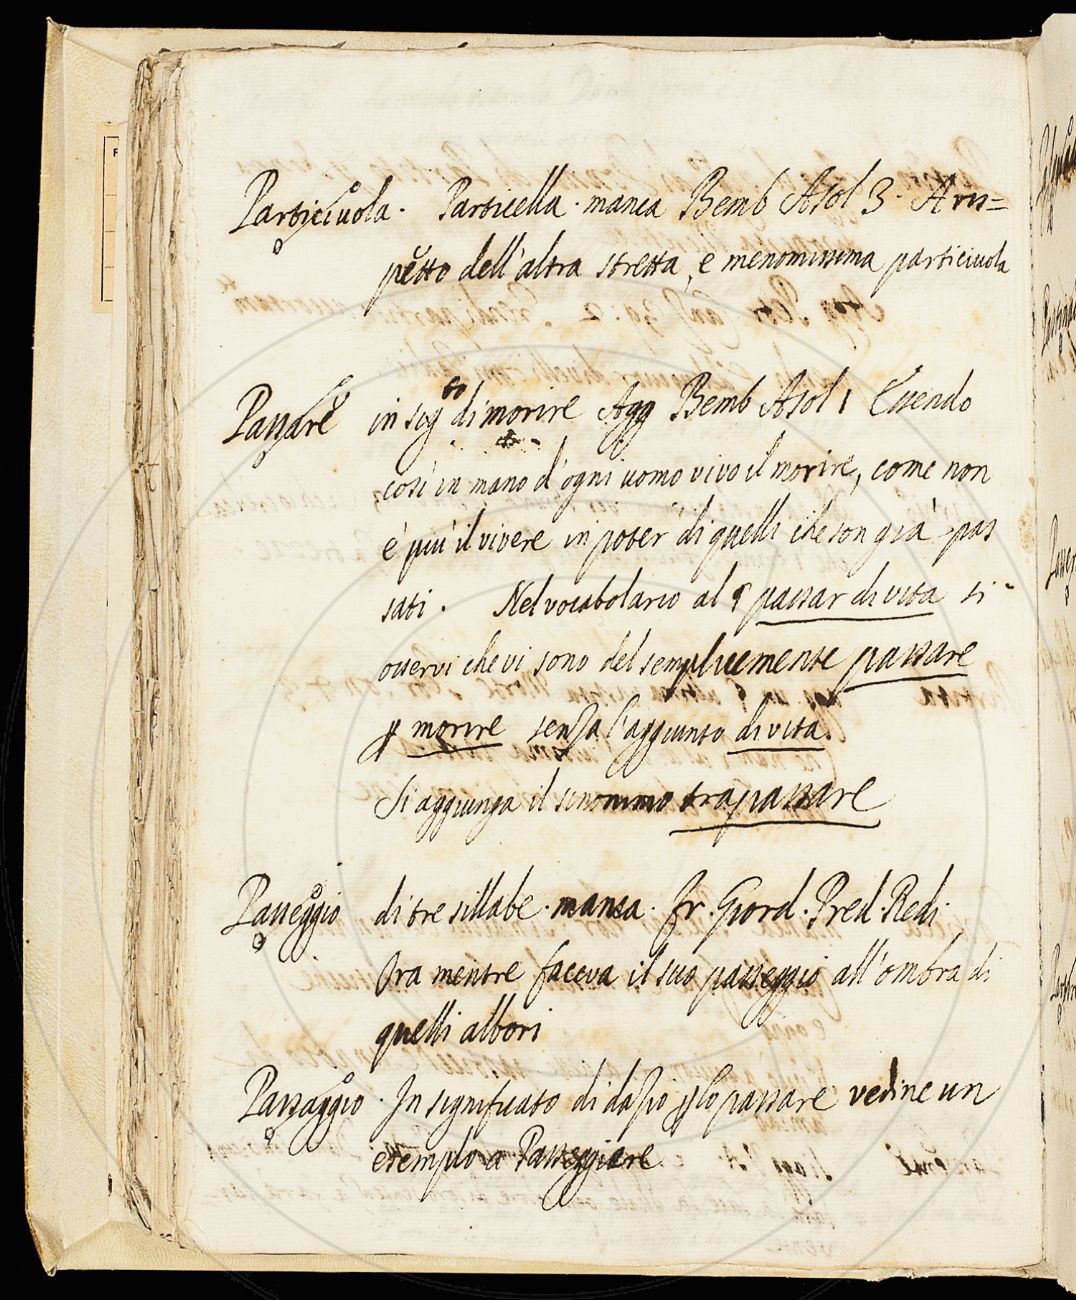 Particiuola. Particella. manca Bemb Asol 3. A ris=
petto dell'altra stretta, e menomissima particiuola
Passare in sig.to di morire Agg Bemb Asol 1 Essendo
così in mano d'ogni uomo vivo il morire, come non
è più il vivere in poter di quelli che son già pas
sati. Nel vocabolario al § passar di vita si
osservi che vi sono del semplicemente passare
ꝑ morire senza l'aggiunto di vita.
Si aggiunga il sinonimo trapassare
Passeggio di tre sillabe. manca. Fr. Giord. Pred. Red.
Ora mentre faceva il suo passeggio all'ombra di
quelli albori
Passaggio. In significato di dazio ꝑ lo passare vedine un
esempio a Passeggiere.